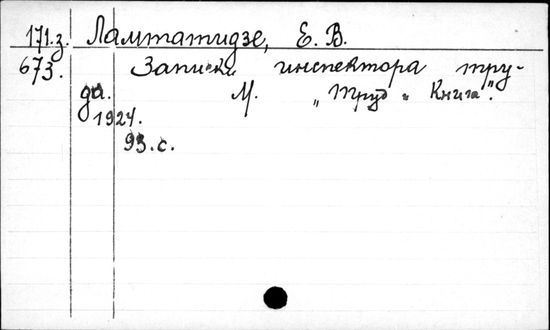 171.з. Ламтатидзе, Е. В.
673. Записки инспектора тру-
да. М. „Труд и Книга".
1924.
93. с.